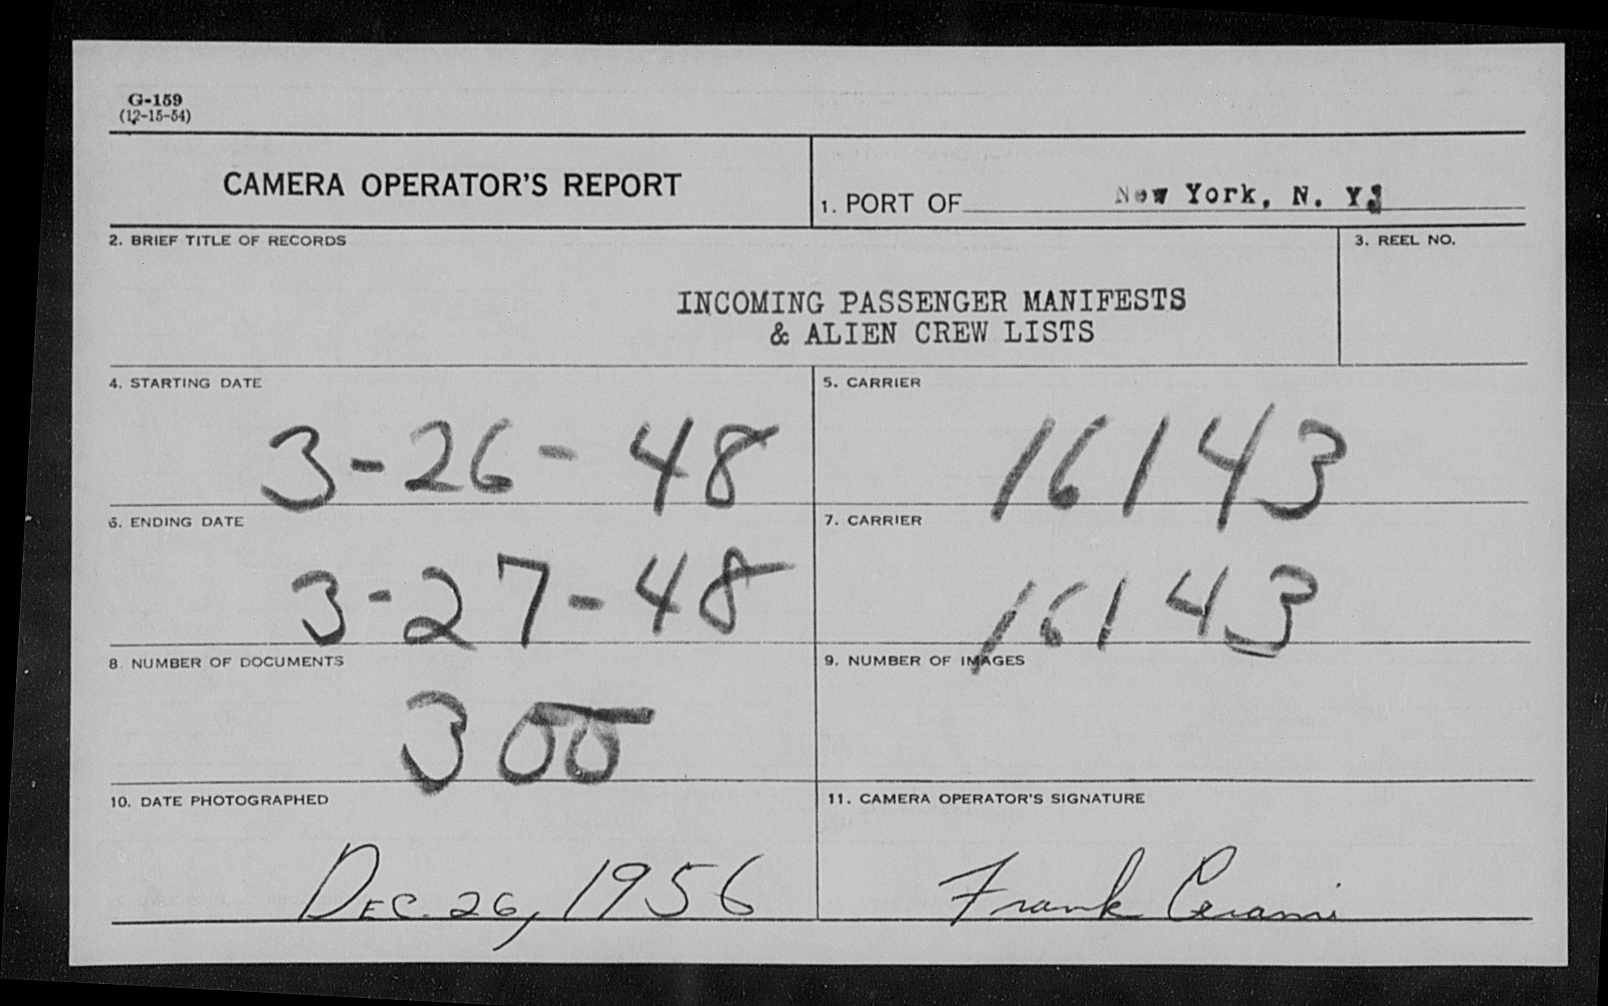 G-159
(12-15-54)
CAMERA OPERATOR'S REPORT
1. PORT OF New York, N. Y.
2. BRIEF TITLE OF RECORDS
3. REEL NO.
INCOMING PASSENGER MANIFESTS
& ALIEN CREW LISTS
4. STARTING DATE
5. CARRIER
3-26-48
16143
6. ENDING DATE
7. CARRIER
3-27-48
16143
8. NUMBER OF DOCUMENTS
9. NUMBER OF IMAGES
300
10. DATE PHOTOGRAPHED
11. CAMERA OPERATOR'S SIGNATURE
DEC. 26, 1956
Frank Cerami